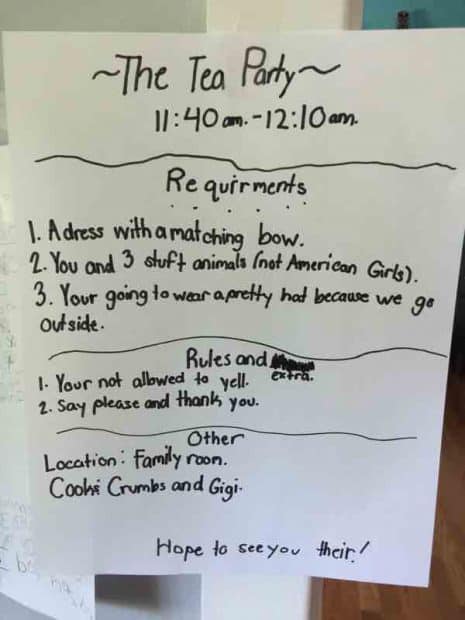 ~The Tea Party~
11:40 am.-12:10 am.
Requirments
1. A dress with a matching bow.
2. You and 3 stuft animals (not American Girls).
3. Your going to wear a pretty hat because we go
outside.
Rules and
extra.
1. Your not allowed to yell.
2. Say please and thank you.
Other
Location: Family roon.
Cooki Crumbs and Gigi.
Hope to see you their!